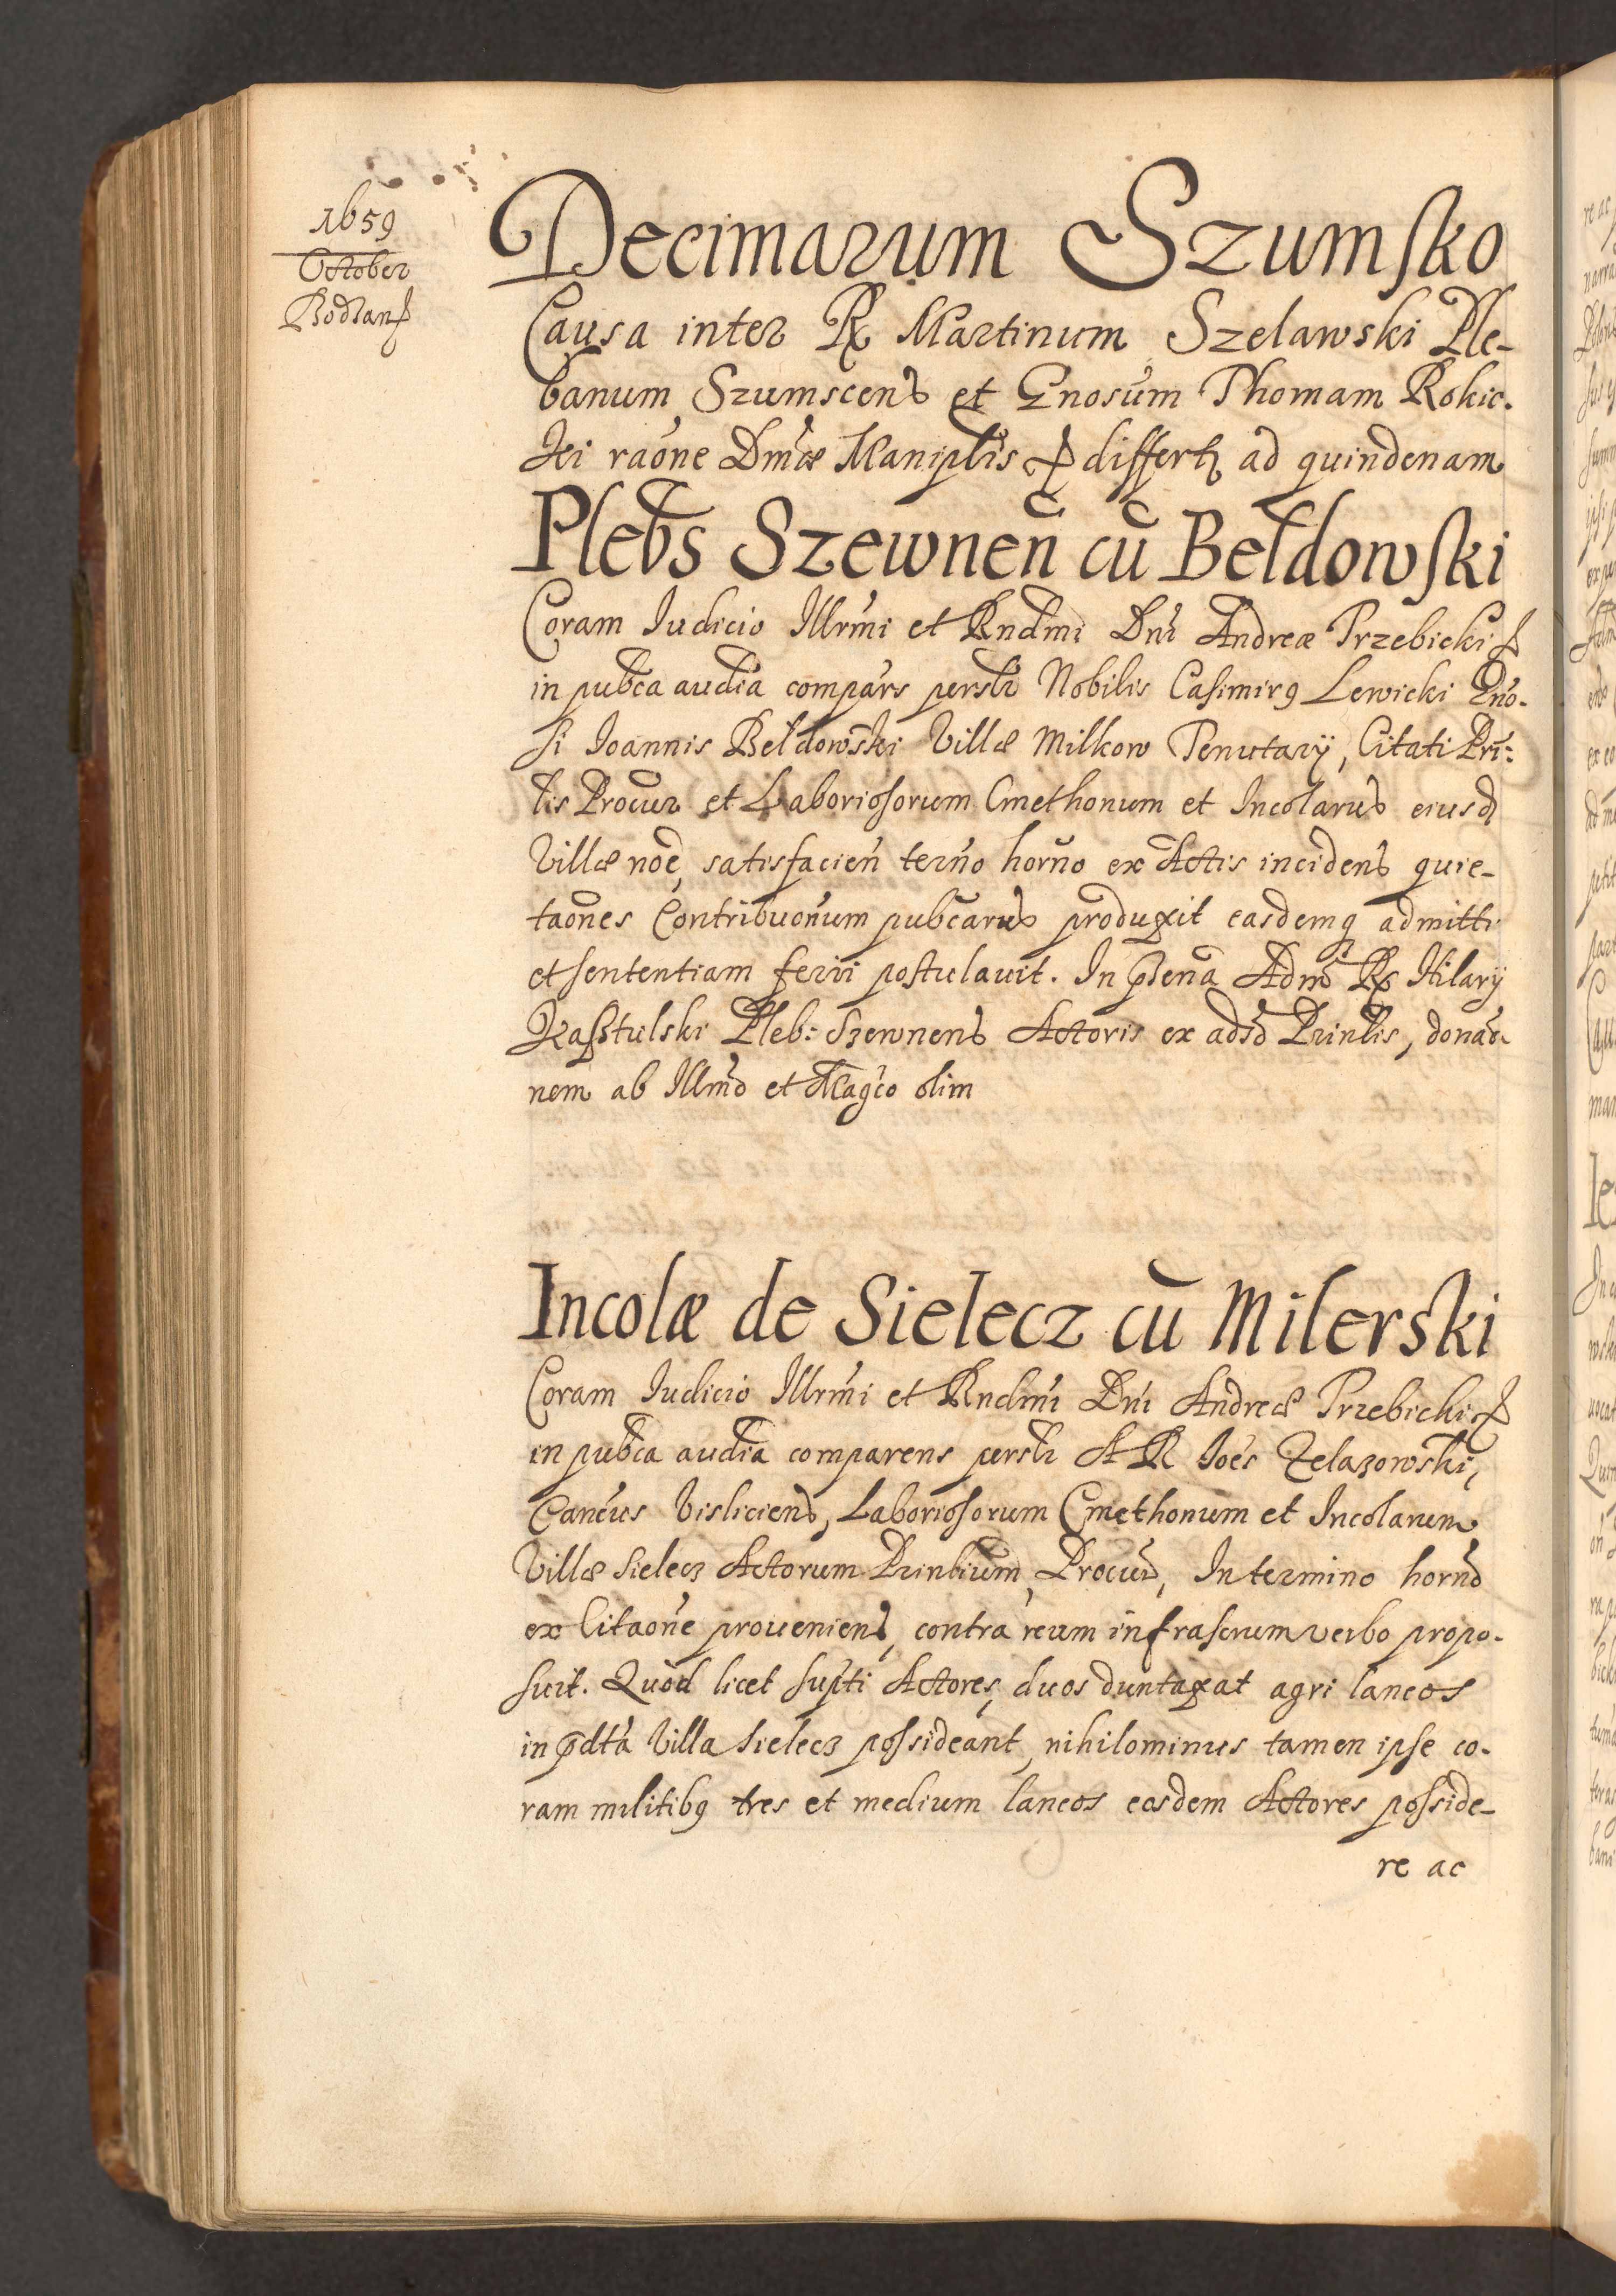 1659
October
Bodzan
Decimarum Szumsko
Causa inter R Martinum Szelawski Ple-
banum Szumscens et Gnosum Thomam Rokic-
ki raone Dmæ Maniplis p differt ad quindenam
Plebs Szewnen cu Bełdowski
Coram Iudicio Illrmi et Rndmi Dni Andreæ Trzebicki p
in pubca audia compars perslr Nobilis Casimirg Lewicki Gno-
si Ioannis Bełdowski Villæ Milkow Tenutarÿ, Citati Pri:
lis Procur et Laboriosorum Cmethonum et Incolarum eiusd
Villæ noe, satisfacien terno horno ex Actis incidens quie-
taones Contribuonum pubcarum produxit easdemq admitti
et sententiam ferri postulavit. In pñena Adm R Hilarÿ
Kasztulski Pleb: Szewnens Actoris ex adsd Prinlis, donao-
nem ab Illmo et Magco olim
Incolæ de Sielecz cu Milerski
Coram Iudicio Illrmi et Rndmi Dni Andreæ Trzebicki p
in pubca audia comparens perslr A R Ioes Zelazowski,
Cancus Visliciens, Laboriosorum Cmethonum et Incolarum
Villæ Sielecz Actorum Prinlium, Procur, In termino horno
ex Citaone proveniens, contra reum infrascrum verbo propo-
suit. Quod licet supti Actores, duos duntaxat agri laneos
in pdta Villa Sielecz possideant, nihilominus tamen ipse co-
ram militibg tres et medium laneos eosdem Actores posside-
re ac